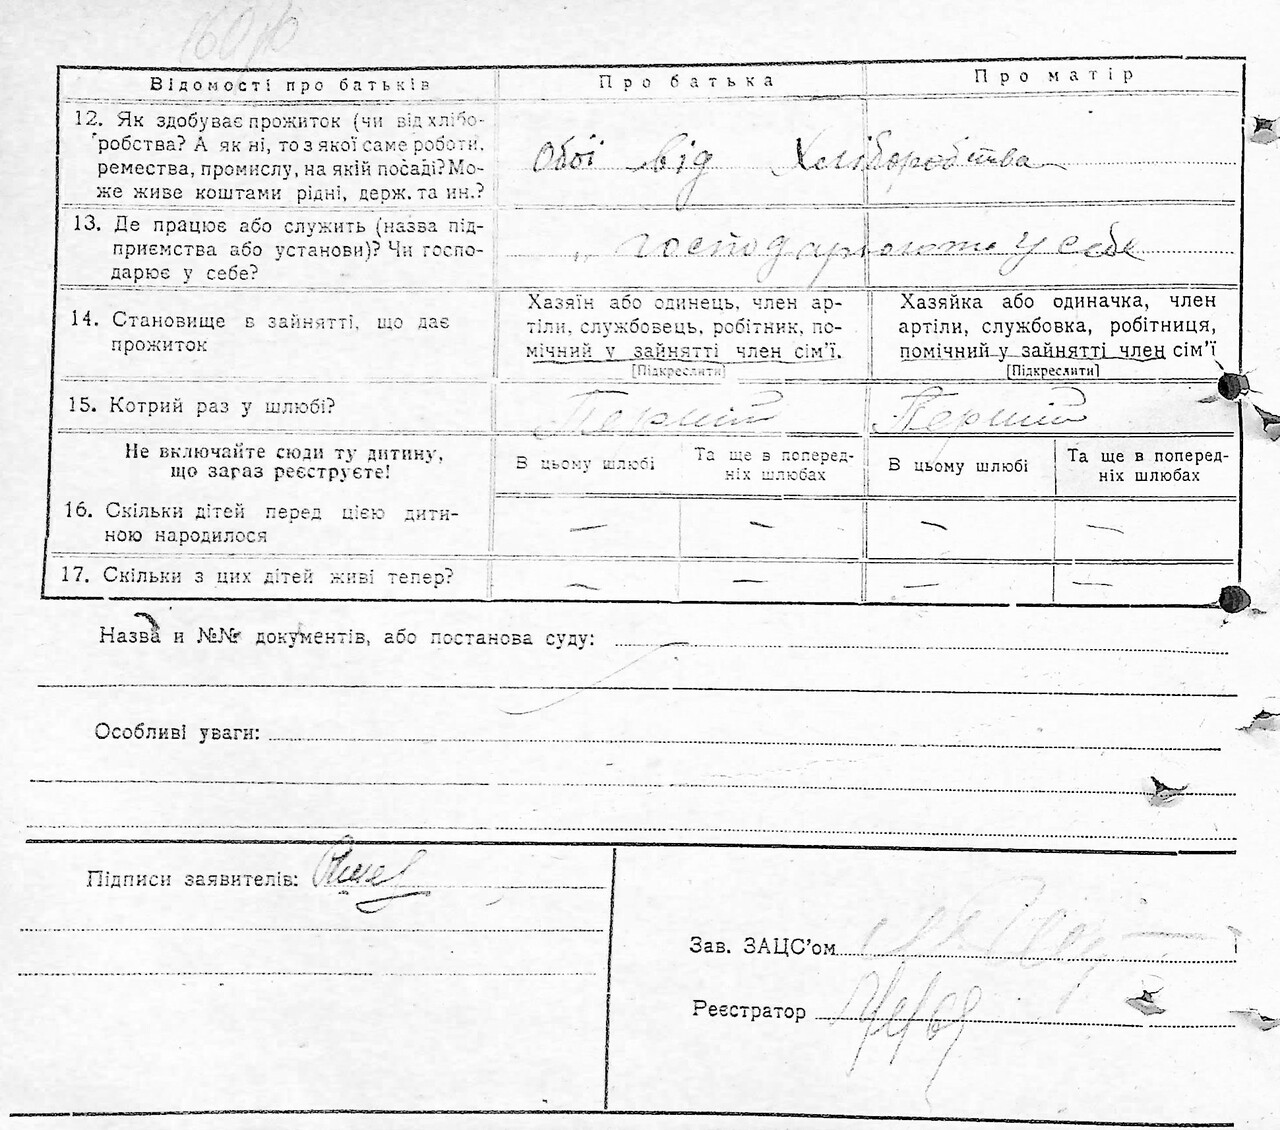 Відомості про батьків
Про батька
Про матір
12. Як здобуває прожиток (чи від хлібо-
робства? А як ні, то з якої саме роботи,
ремества, промислу, на якій посаді? Мо-
же живе коштами рідні, держ. та ин.?
Обоі від Хліборобства
13. Де працює або служить (назва під-
приємства або установи)? Чи госпо-
дарює у себе?
„ господарюють у себе
14. Становище в зайнятті, що дає
прожиток
Хазяїн або одинець, член ар-
тіли, службовець, робітник, по-
мічний у зайнятті член сім'ї.
[Підкреслити]
Хазяйка або одиначка, член
артіли, службовка, робітниця,
помічний у зайнятті член сім'ї
[Підкреслити]
15. Котрий раз у шлюбі?
Перший
Перший
Не включайте сюди ту дитину,
що зараз реєструєте!
В цьому шлюбі
Та ще в поперед-
ніх шлюбах
В цьому шлюбі
Та ще в поперед-
ніх шлюбах
16. Скільки дітей перед цією дити-
ною народилося
— — — —
17. Скільки з цих дітей живі тепер?
— — — —
Назва и №№ документів, або постанова суду:
Особливі уваги:
Підписи заявителів:
Зав. ЗАЦС'ом
Реєстратор